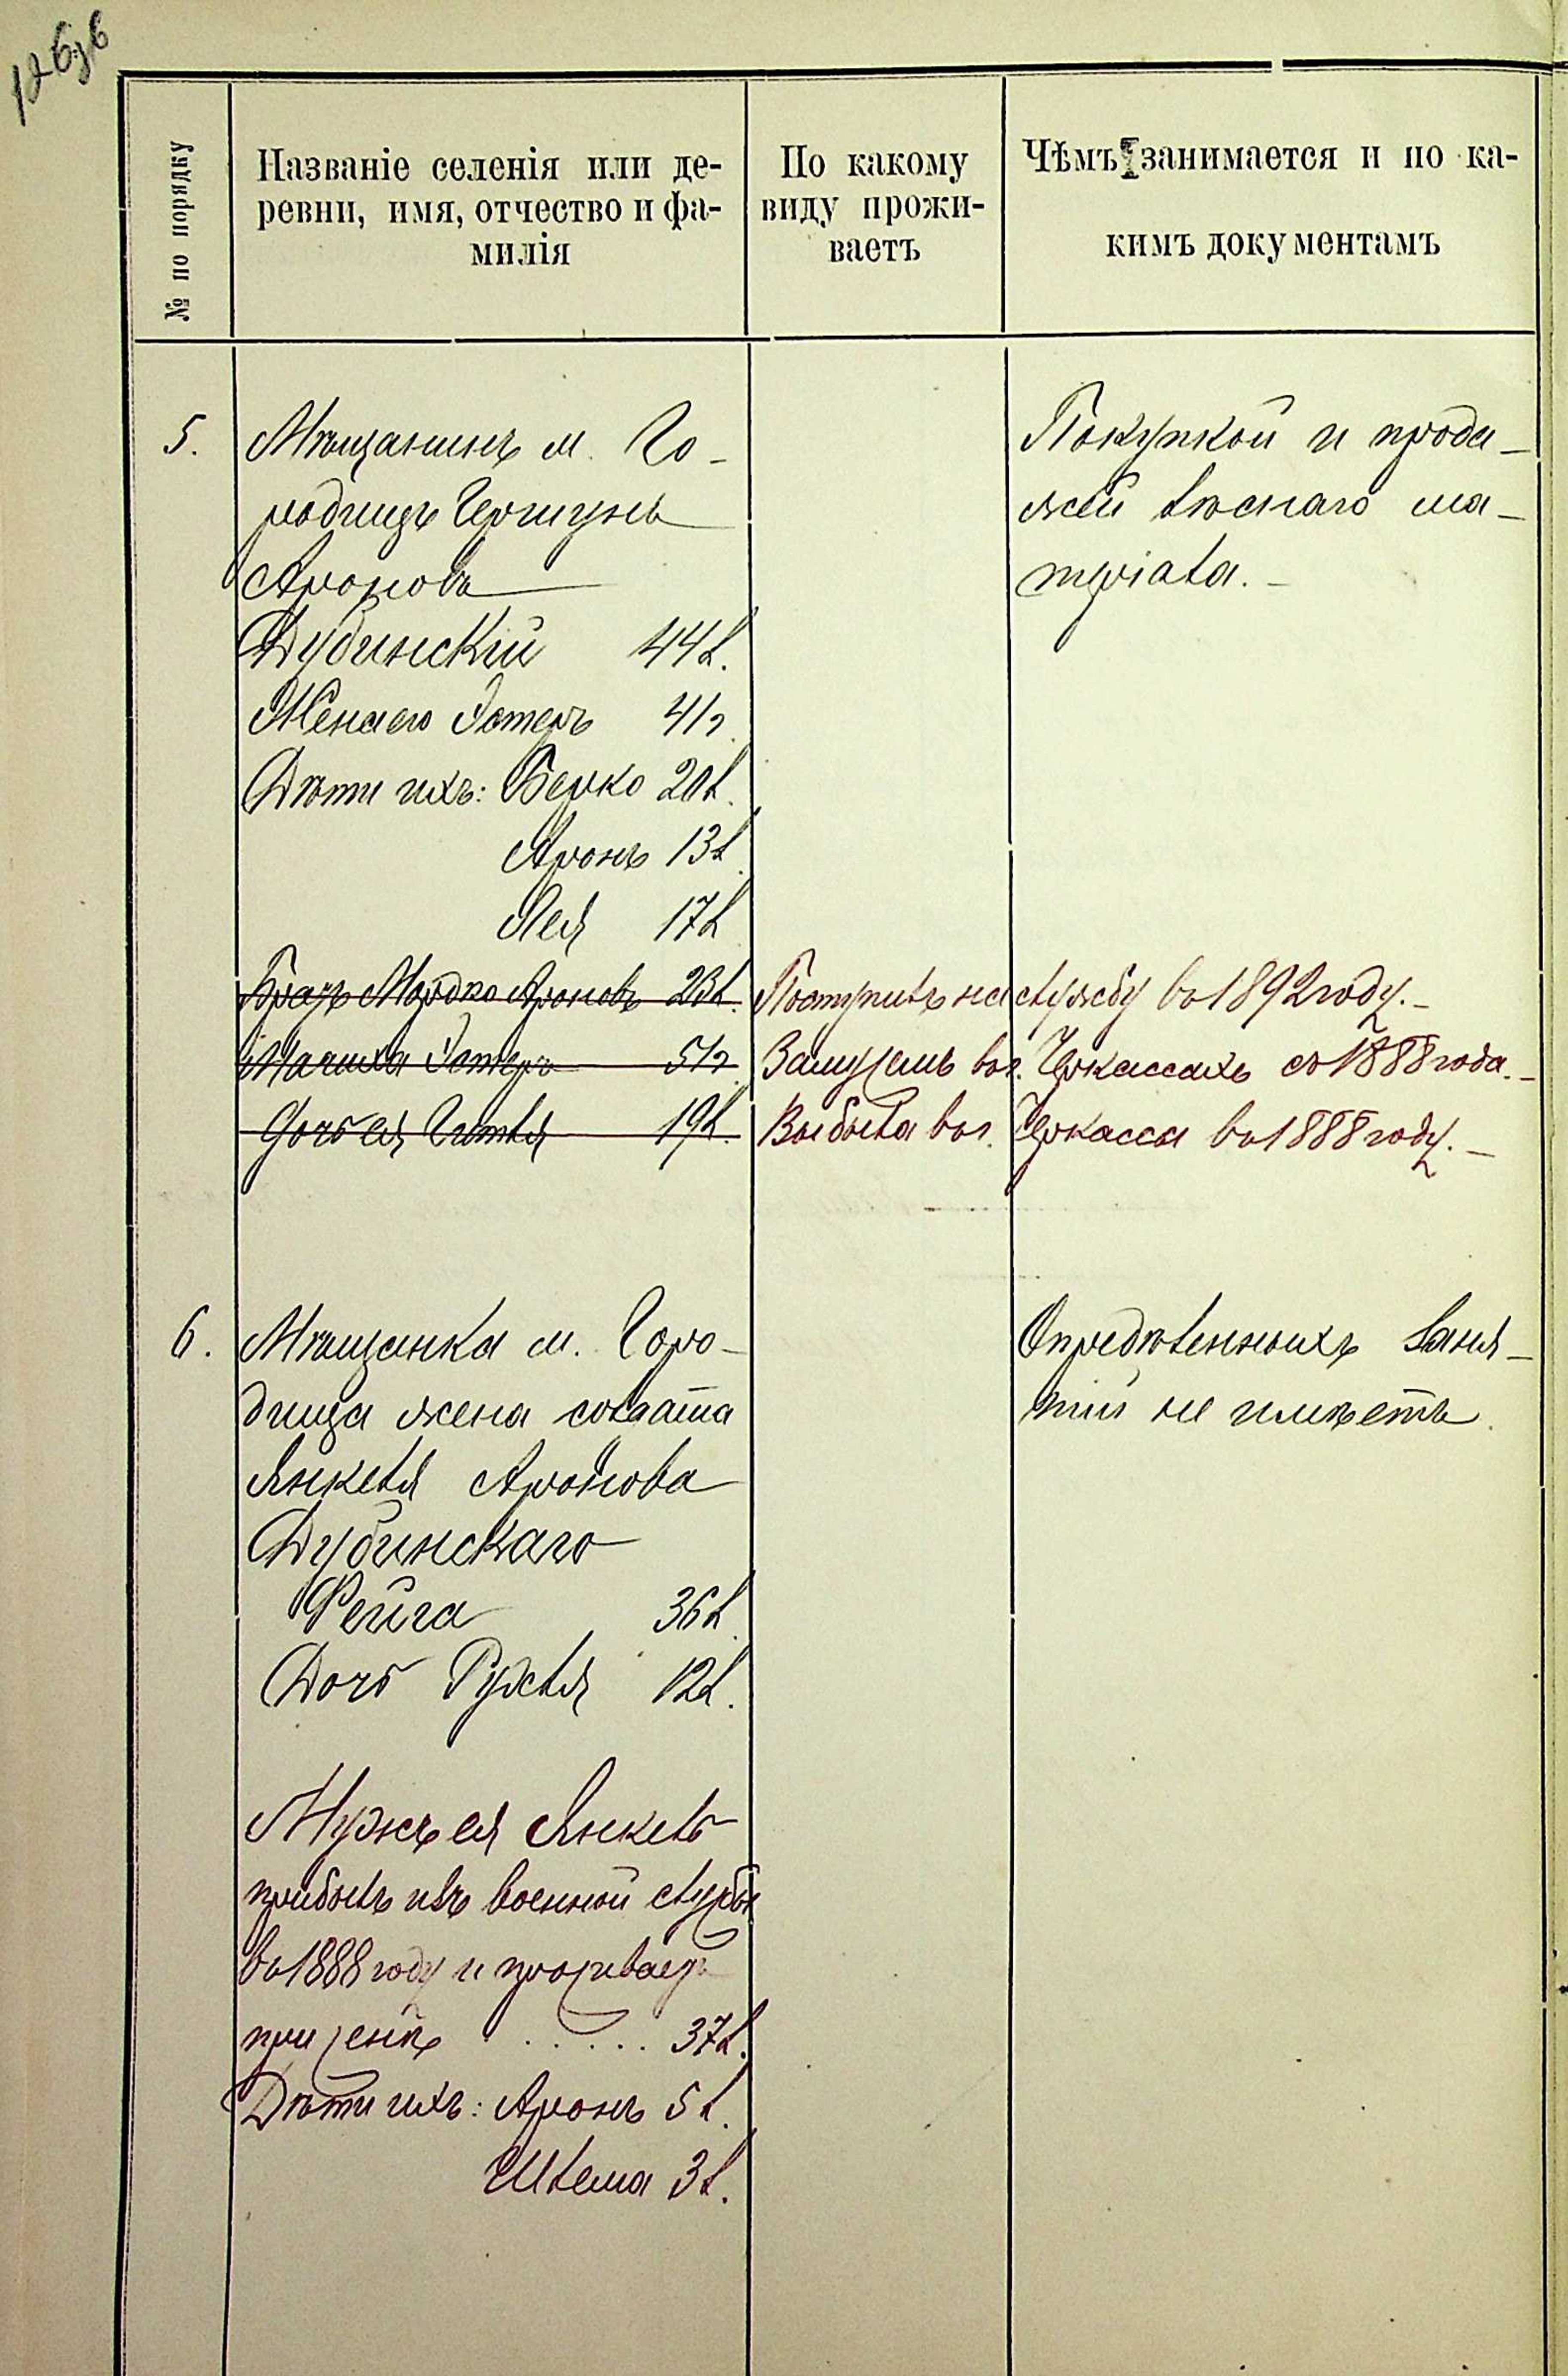 № по порядку
Названіе селенія или де-
ревни, имя, отчество и фа-
милія
По какому
виду прожи-
ваетъ
Чѣмъ занимается и по ка-
кимъ документамъ
5.
Мѣщанинъ м. Го-
родищъ Гершунъ
Ароновъ
Дубинскій 44 л.
Жена его Эстеръ 41 г.
Дѣти ихъ: Берко 20 л.
Аронъ 13 л.
Лея 17 л
Братъ Мордко Ароновъ 23 л.
Мачиха Эстеръ 51 г.
Дочь ея Гитля 19 л.
Покупкой и прода-
жей лѣснаго ма-
теріала.
Поступилъ на службу въ 1892 году.
Замужемъ въ г. Черкассахъ съ 1888 года.
Выбыла въ г. Черкассы въ 1888 году.
6.
Мѣщанка м. Горо-
дища жена солдата
Янкеля Аронова
Дубинскаго
Фейга 36 л.
Дочь Рухля 12 л.
Мужъ ея Янкель
прибылъ изъ военной службы
въ 1888 году и проживаетъ
при женѣ ..... 37 л.
Дѣти ихъ: Аронъ 5 л.
Шлема 3 л.
Опредѣленныхъ заня-
тій не имѣетъ.